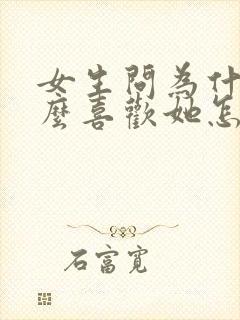 女生問為什
麼喜歡她怎
石富寬